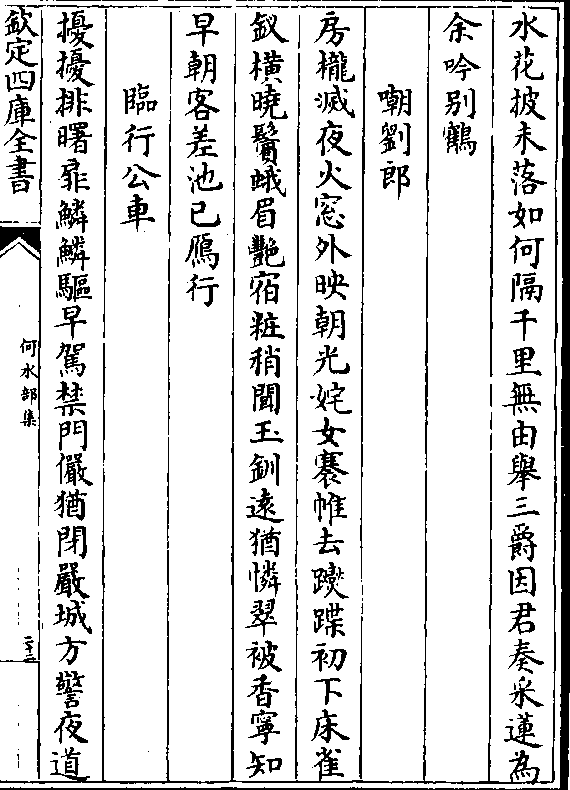 水花披未落如何隔千里無由舉三爵因君奏采蓮為
余吟别鶴
嘲劉郎
房櫳滅夜火窓外映朝光姹女褰帷去躞蹀初下床雀
釵橫曉鬢蛾眉艶宿粧稍聞玉釧逺猶憐翠被香寧知
早朝客差池已鴈行
臨行公車
擾擾排曙扉鱗鱗驅早駕禁門儼猶閉嚴城方警夜道
欽定四庫全書
何水部集
二十二